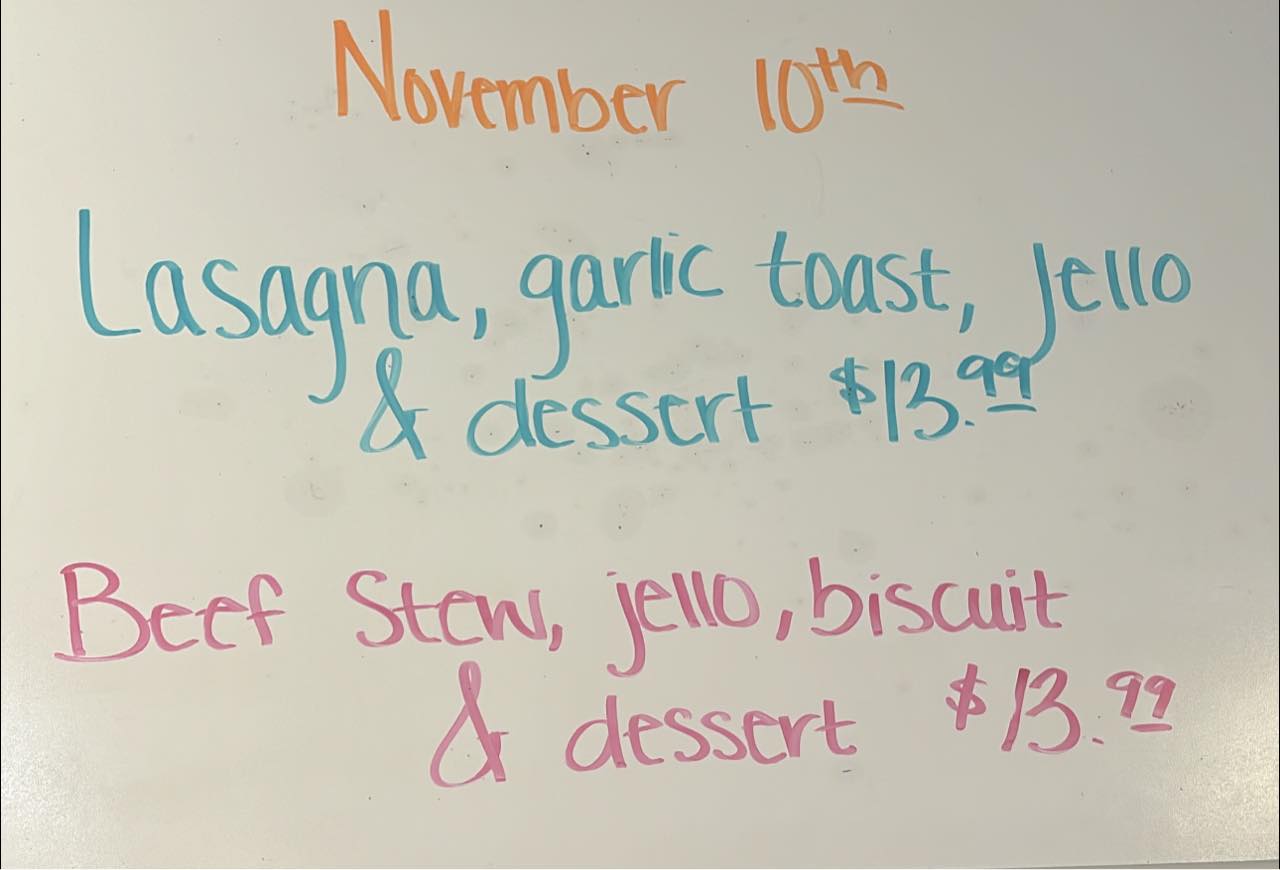 November 10th
Lasagna, garlic toast, Jello
& dessert $13.99
Beef Stew, jello, biscuit
& dessert $13.99